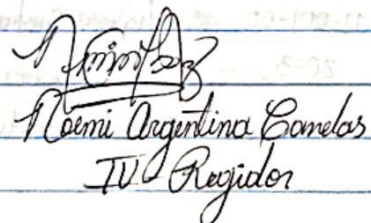 Noemi Argentina Canelas
IV Regidor